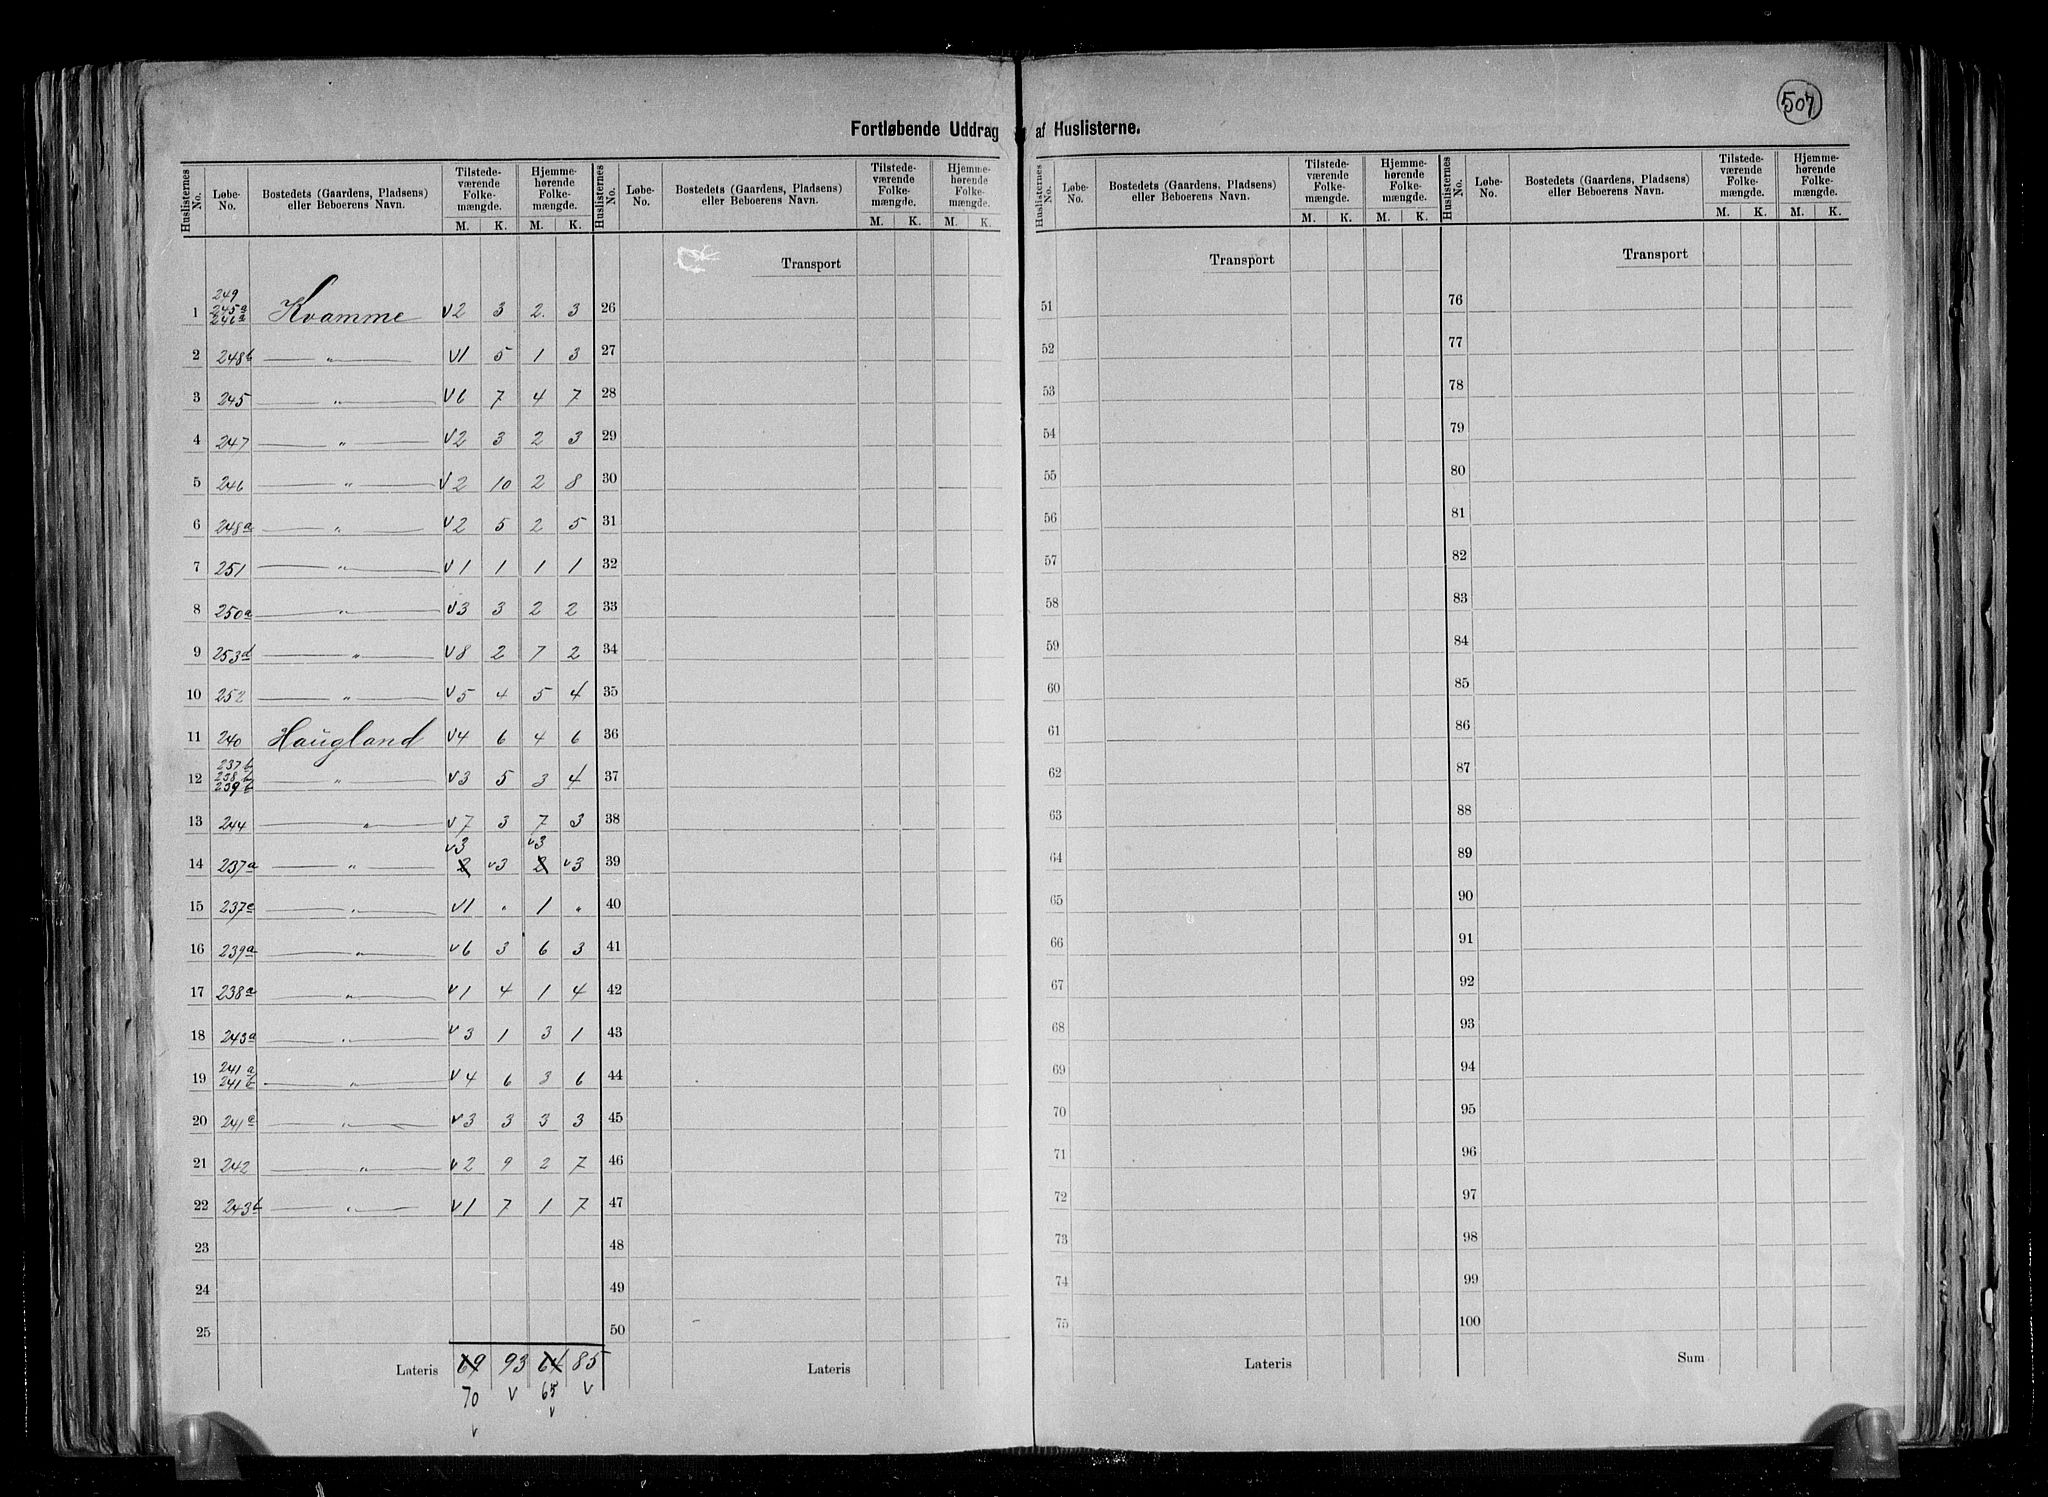 507
Fortløbende Uddrag af Huslisterne.
Huslisternes No. Løbe-No. Bostedets (Gaardens, Pladsens) eller Beboerens Navn. Tilstedeværende Folkemængde. M. K. Hjemmehørende Folkemængde. M. K.
Huslisternes No. Løbe-No. Bostedets (Gaardens, Pladsens) eller Beboerens Navn. Tilstedeværende Folkemængde. M. K. Hjemmehørende Folkemængde. M. K.
Huslisternes No. Løbe-No. Bostedets (Gaardens, Pladsens) eller Beboerens Navn. Tilstedeværende Folkemængde. M. K. Hjemmehørende Folkemængde. M. K.
Huslisternes No. Løbe-No. Bostedets (Gaardens, Pladsens) eller Beboerens Navn. Tilstedeværende Folkemængde. M. K. Hjemmehørende Folkemængde. M. K.
Transport Transport Transport
249
245a
1 246a Kvamme v2 3 2 3 26 51 76
2 248b — " — v1 5 1 3 27 52 77
3 245 — " — v6 7 4 7 28 53 78
4 247 — " — v2 3 2 3 29 54 79
5 246 — " — v2 10 2 8 30 55 80
6 248a — " — v2 5 2 5 31 56 81
7 251 — " — v1 1 1 1 32 57 82
8 250a — " — v3 3 2 2 33 58 83
9 253d — " — v8 2 7 2 34 59 84
10 252 — " — v5 4 5 4 35 60 85
11 240 Haugland v4 6 4 6 36 61 86
237b
238b
12 239b — " — v3 5 3 4 37 62 87
13 244 — " — v7 3 7 3 38 63 88
v3 v3
14 237a — " — 2 v3 2 v3 39 64 89
15 237c — " — v1 " 1 " 40 65 90
16 239a — " — v6 3 6 3 41 66 91
17 238a — " — v1 4 1 4 42 67 92
18 243a — " — v3 1 3 1 43 68 93
241a
19 241b — " — v4 6 3 6 44 69 94
20 241c — " — v3 3 3 3 45 70 95
21 242 — " — v2 9 2 7 46 71 96
22 243b — " — v1 7 1 7 47 72 97
23 48 73 98
24 49 74 99
25 50 75 100
Lateris 69 93 64 85 Lateris Lateris Sum
70 v 65 v
v v